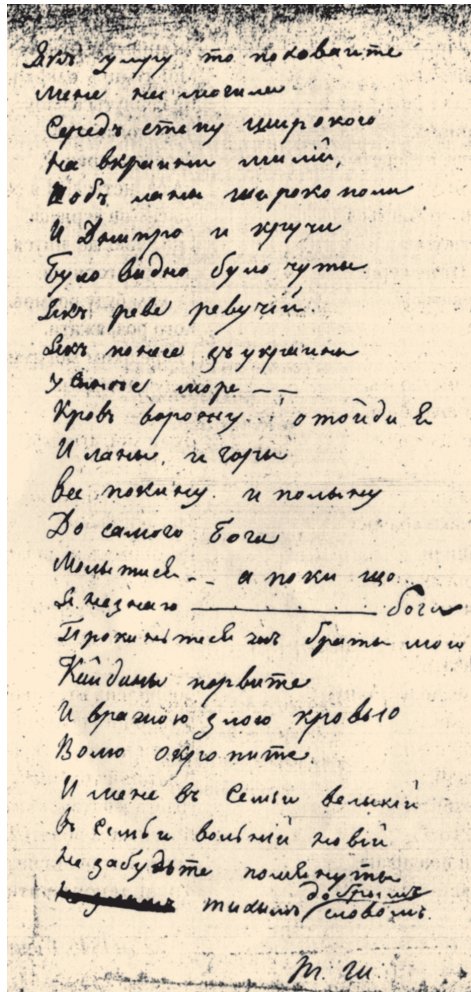 Якъ умру то поховайте
мене на могили
Середъ степу широкого
на вкраини милій,
Щобъ ланы широкополи
И Днипро и кручи
Було видно було чуты
Якъ реве ревучій.
Якъ понесе зъ украины
у синее море --
Кровъ ворожу.. отойди я
И ланы, и горы
все покину. и полыну
До самого бога
Молытися -- а поки що
Я незнаю ——— бога
Прокиньтеся
Кайданы порвите
И вражою злою кровью
Волю окропите.
И мене въ семьи великій
въ семьи вольній новій
не забудьте помянуты
добрымъ
тихымъ словомъ.
Т. Ш.